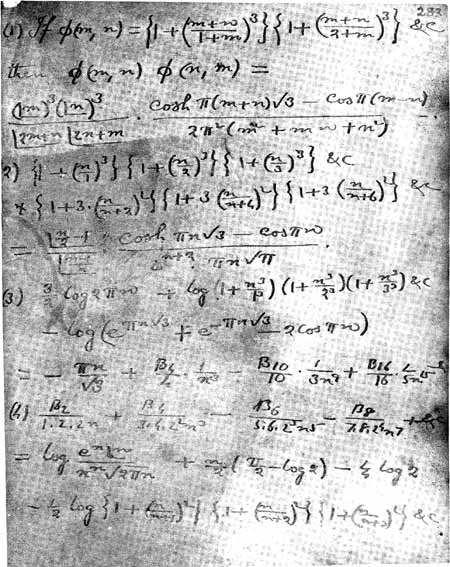 233
(1) If φ(m, n) = {1 + ((m+n)/(1+m))^3}{1 + ((m+n)/(2+m))^3} &c
then φ(m, n) φ(n, m) =
(|m)^3 (|n)^3 / (|2m+n |2n+m) · (cosh π(m+n)√3 − cos π(m−n)) / (2π^2(m^2 + mn + n^2)).
2) {1 + (n/1)^3}{1 + (n/2)^3}{1 + (n/3)^3} &c
× {1 + 3·(n/(n+2))^2}{1 + 3(n/(n+4))^2}{1 + 3(n/(n+6))^2} &c
= · (cosh πn√3 − cos πn) / (2^{n+2} · πn√π).
(3) 3/2 log 2πn + log (1 + n^3/1^3)(1 + n^3/2^3)(1 + n^3/3^3) &c
− log (e^{πn√3} + e^{−πn√3} − 2 cos πn)
= − πn/√3 + B_4/4 · 1/n^3 − B_10/10 · 1/3n^9 +
(4) B_2/1.2.2n + B_4/3.4.2^2n^3 − B_6/5.6.2^3n^5 − B_8/7.8.2^4n^7 + &c
= log e^n |n / n^n √2πn + n/2 (π/2 − log 2) − log 2
− 1/2 log {1 + (n/(n+1))^2}{1 + (n/(n+2))^2}{1 + (n/(n+3))^2} &c